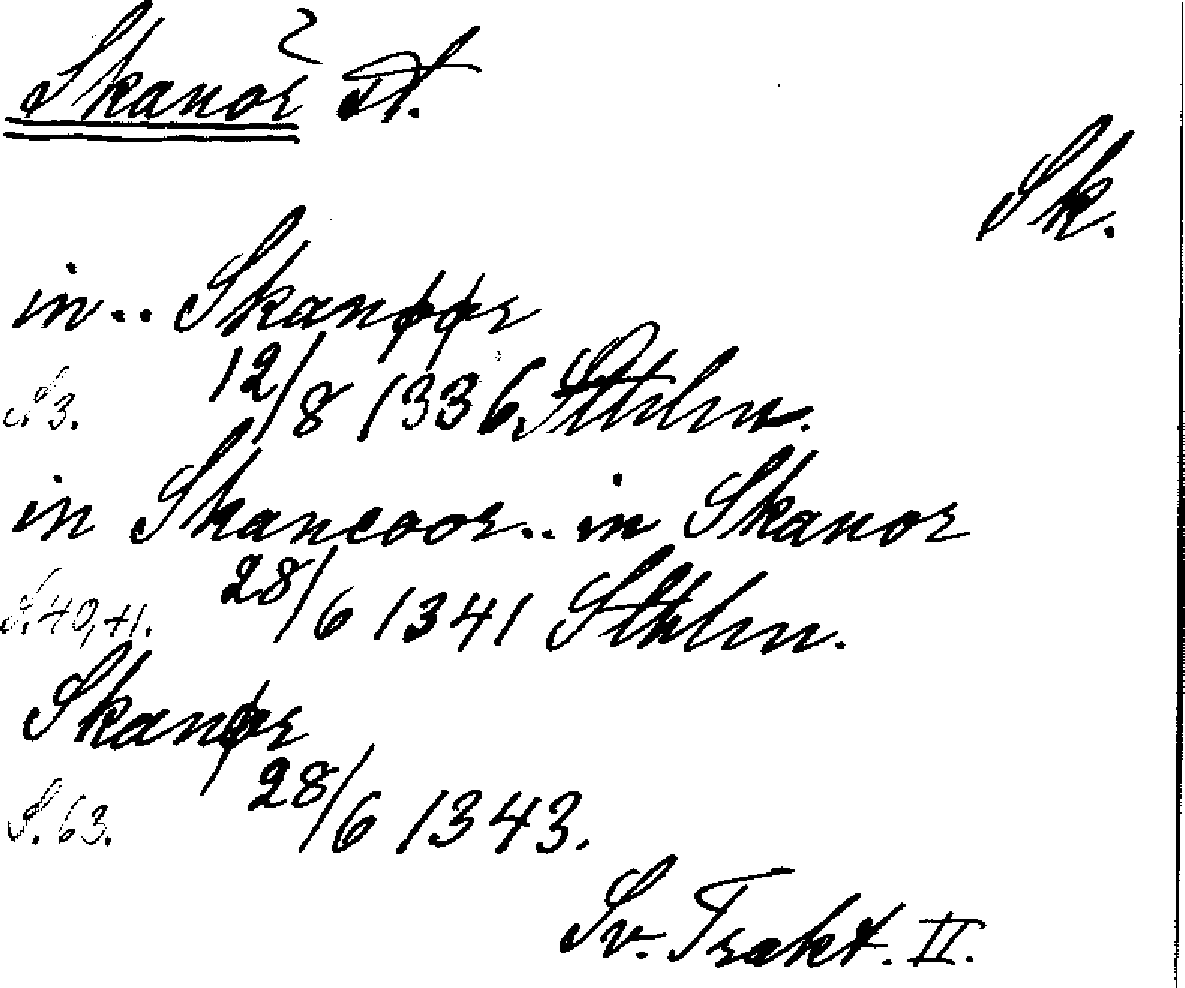 Skanör St.
Sk.
in.. Skanøør
S. 3. 12/8 1336 Sthlm.
in Skaneoor.. in Skanor
S. 40, 41. 28/6 1341 Sthlm.
Skanør
S. 63. 28/6 1343.
Sv. Trakt. II.